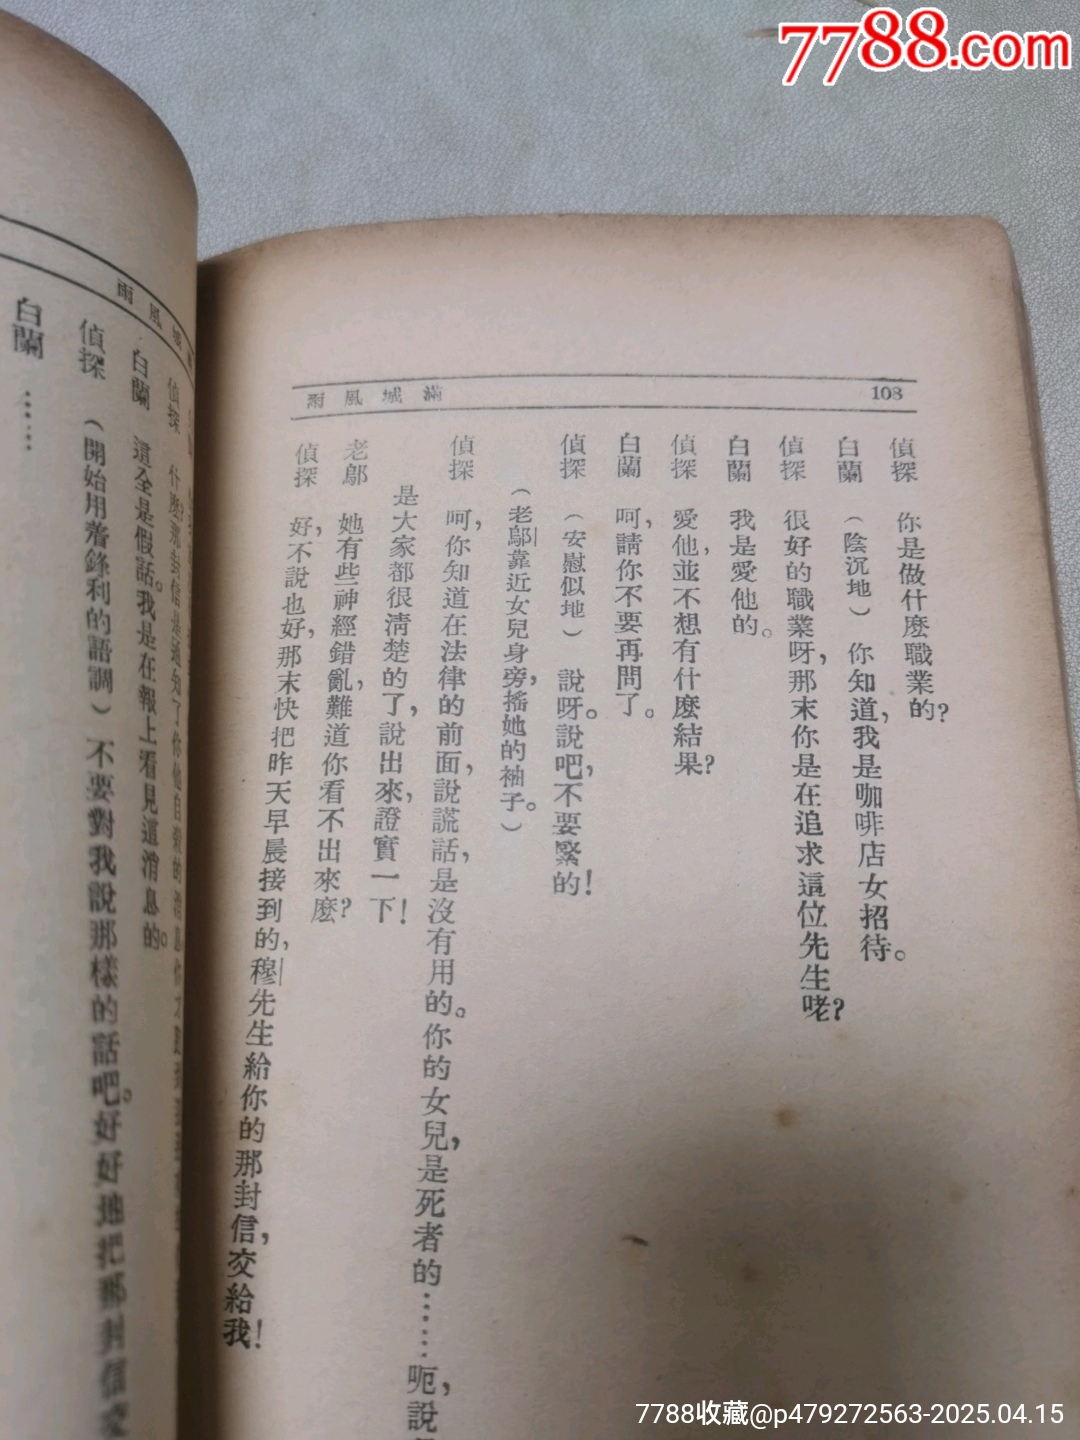 7788.com
108
滿城風雨
偵探　你是做什麼職業的？
白蘭　（陰沉地）你知道，我是咖啡店女招待。
偵探　很好的職業呀，那末你是在追求這位先生咾？
白蘭　我是愛他的。
偵探　愛他，並不想有什麼結果？
白蘭　呵，請你不要再問了。
偵探　（安慰似地）說呀。說吧，不要緊的！
（老鄔靠近女兒身旁，搖她的袖子。）
偵探　呵，你知道在法律的前面，說謊話，是沒有用的。你的女兒，是死者的……呃，說
是大家都很清楚的了，說出來，證實一下！
老鄔　她有些神經錯亂，難道你看不出來麼？
偵探　好，不說也好，那末快把昨天早晨接到的，穆先生給你的那封信，交給我！
城風雨
偵探　什麼？那封信是通知了你他自殺的消息，你才
白蘭　這全是假話。我是在報上看見這消息的。
偵探　（開始用着鋒利的語調）不要對我說那樣的話吧。好好地把那封信交
白蘭　……
7788收藏@p479272563-2025.04.15